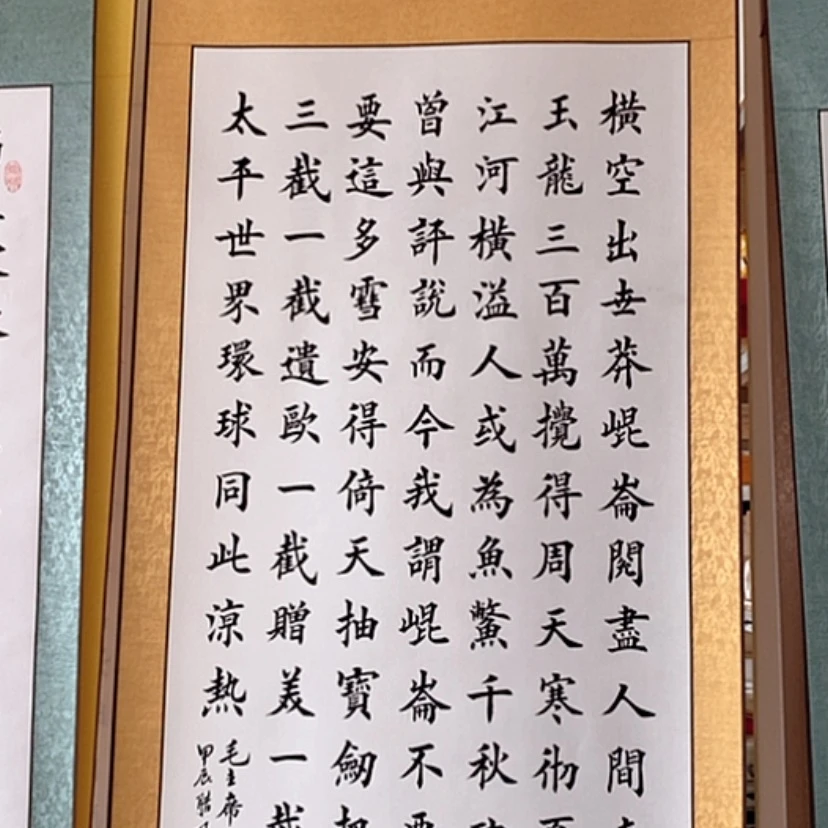 橫空出世莽崐崙閱盡人間
玉龍三百萬攪得周天寒彻
江河橫溢人或為魚鱉千秋
曾與評說而今我謂崐崙不要
要這多雪安得倚天抽寶劒
三截一截遺歐一截贈美一截
太平世界環球同此涼熱
毛主席
甲辰